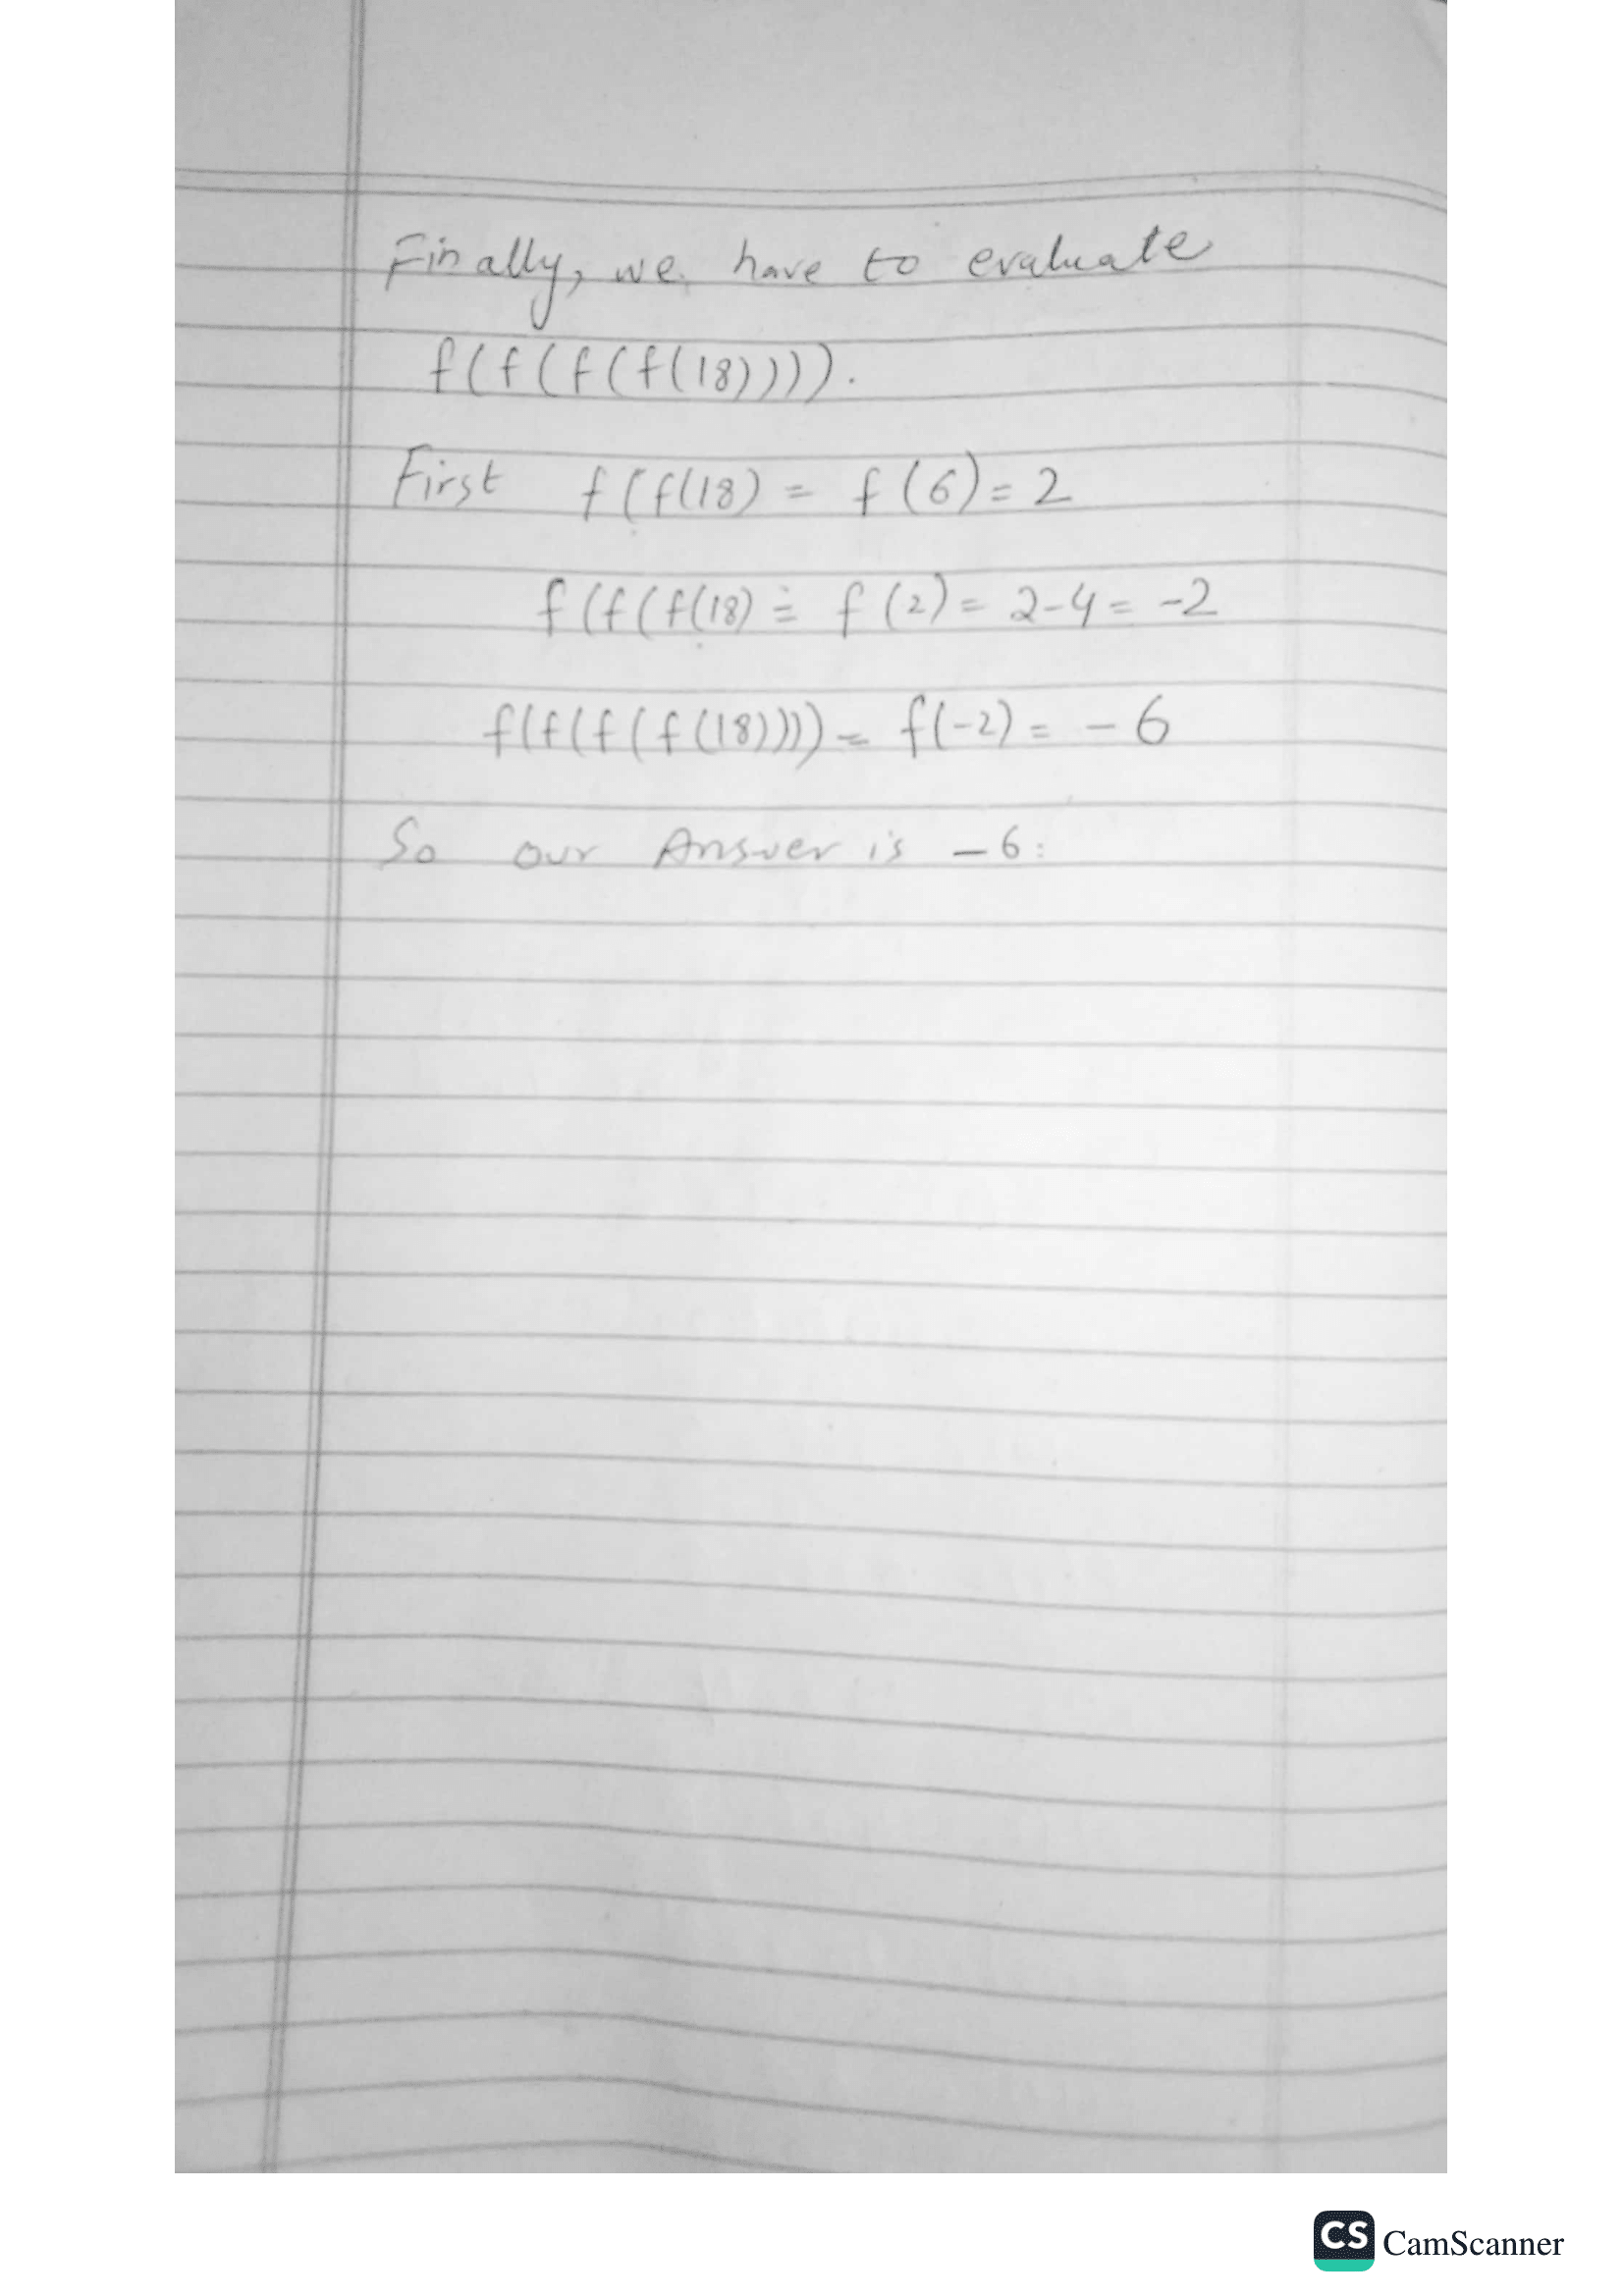 Finally, we have to evaluate
f(f(f(f(18)))).
First f(f(18) = f(6) = 2
f(f(f(18) = f(2) = 2-4 = -2
f(f(f(f(18)))) = f(-2) = -6
So our Answer is -6.
CS CamScanner